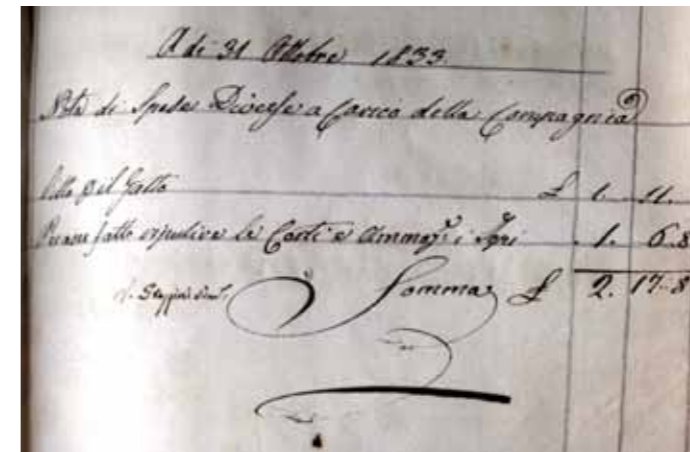 A di 31 Ottobre 1833
Nota di Spese Diverse a Carico della Compagnia
Olio p il Gatto £ 1. 11.
fatto ripulire le Corti e Ammaz.e i Topi 1. 6. 8
Somma £ 2. 17. 8